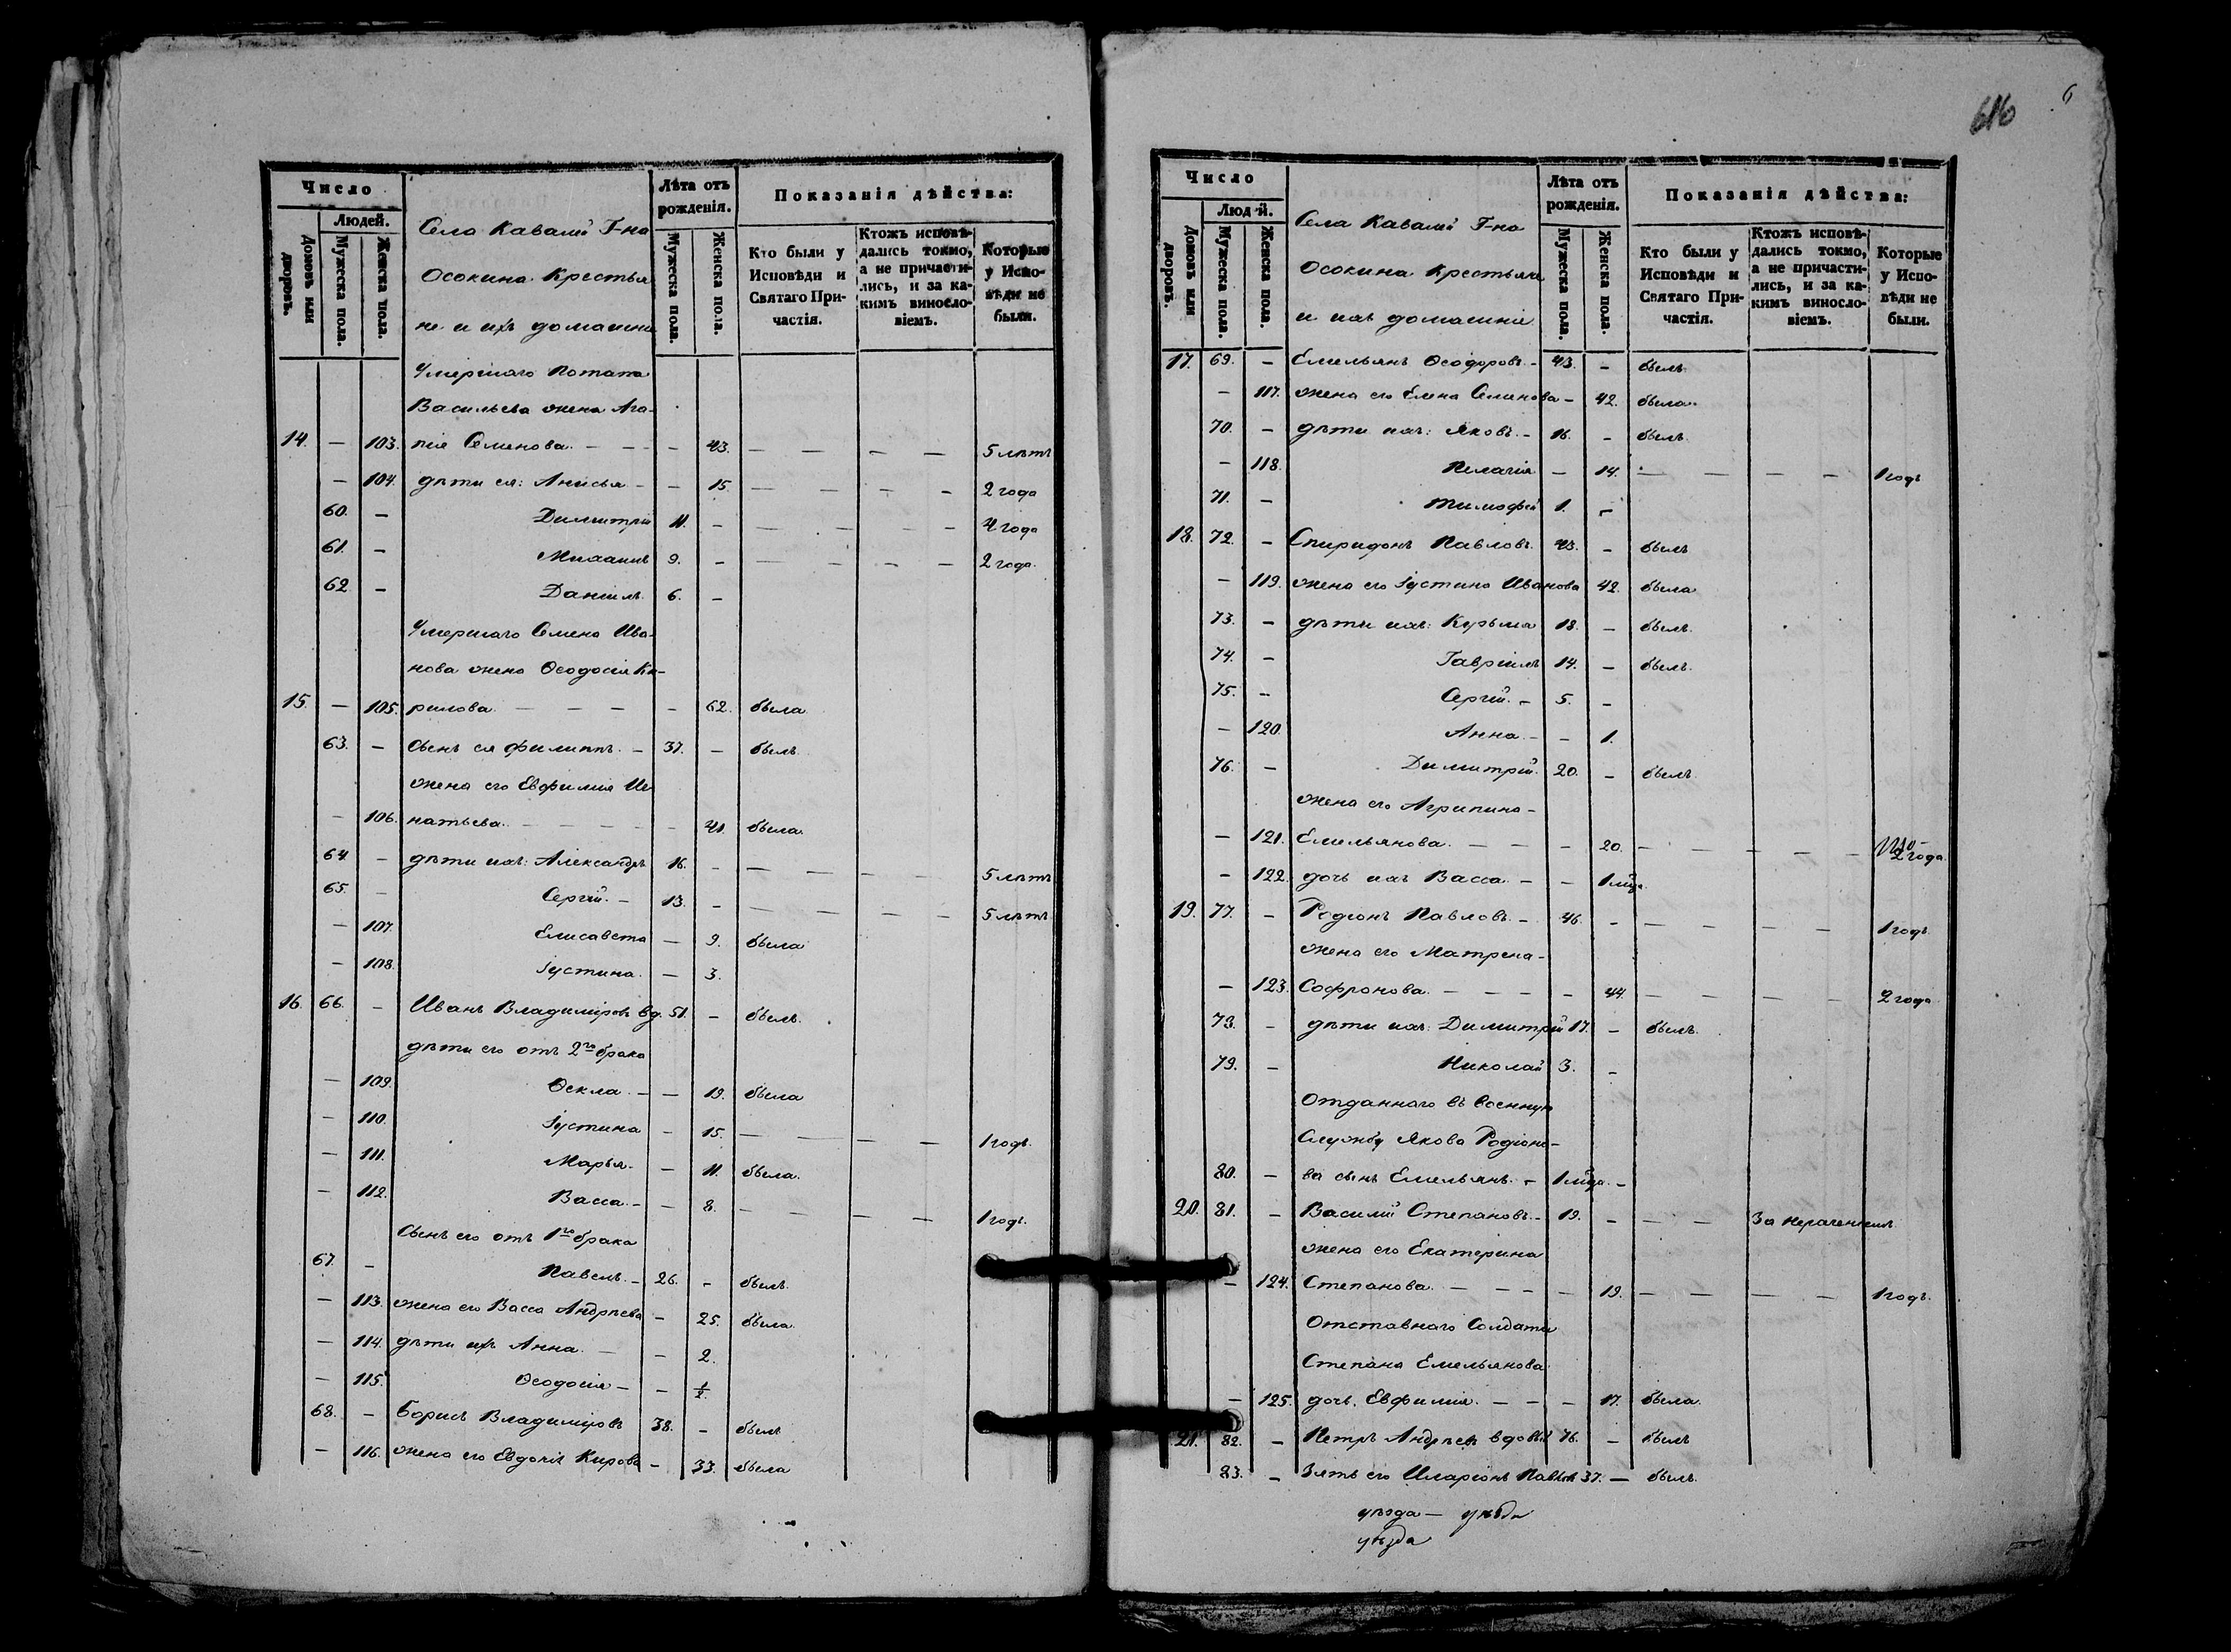 Число
Людей.
Домовъ или дворовъ.
Мужеска пола.
Женска пола.
Село Кавалей Г-на
Осокина Крестья
не и ихъ домашни
Лѣта отъ рожденія.
Мужеска пола.
Женска пола.
Показанія дѣйства:
Кто были у Исповѣди и Святаго Причастія.
Ктожъ исповѣдались токмо, а не причастились, и за какимъ винословіемъ.
Которые у Исповѣди не были.
Умершаго Потапа
Васильева жена Ага-
14. — 103. пія Семенова — — — 43. — — — — 5 лѣтъ
— 104. дѣти ея: Анисья — — 15. — — — — 2 года
60. — Димитрій 11. — — — — — 4 года
61. — Михаилъ 9. — — — — — 2 года.
62. — Даніилъ 6. —
Умершаго Семена Ива-
нова жена Ѳеодосія Ки-
15. — 105. рилова — — — — 62. была
63. — Сынъ ея Филиппъ. — 37. — былъ.
жена его Евфимія Иг
— 106. натьева. — — — — 41. была.
64. — дѣти ихъ: Александръ 16. — — — — — 5 лѣтъ
65. — Сергій. — 13. — — — — — 5 лѣтъ
— 107. Елисавета — 9. была
— 108. Іустина. — 3.
16. 66. — Иванъ Владиміровъ вд. 51. — былъ.
дѣти его отъ 2го брака
— 109. Ѳекла — — 19. была
— 110. Іустина — 15. — — — 1 годъ.
— 111. Марья. — 11. была.
— 112. Васса. — — 8. — — — — 1 годъ.
Сынъ его отъ 1го брака
67. — Павелъ. — 26. — былъ.
— 113. жена его Васса Андрѣева — 25. была.
— 114. дѣти ихъ Анна. — — 2.
— 115. Ѳеодосія — — ½.
68. — Борисъ Владиміровъ 38. — былъ
— 116. жена его Евдокія Киров — 33. была
616
6
Число
Людей.
Домовъ или дворовъ.
Мужеска пола.
Женска пола.
Села Кавалей Г-на
Осокина Крестьяне
и ихъ домашніе
Лѣта отъ рожденія.
Мужеска пола.
Женска пола.
Показанія дѣйства:
Кто были у Исповѣди и Святаго Причастія.
Ктожъ исповѣдались токмо, а не причастились, и за какимъ винословіемъ.
Которые у Исповѣди не были.
17. 69. — Емельянъ Ѳеодоровъ. — 43. — былъ.
— 117. жена его Елена Семенова — 42. была.
70. — дѣти ихъ: Яковъ. — 16. — былъ.
— 118. Пелагія — 14. — — — — 1 годъ
71. — Тимофей 1. —
18. 72. — Спиридонъ Павловъ. 43. — былъ
— 119. жена его Іустина Иванова 42. была
73. — дѣти ихъ: Кузьма 18. — былъ.
74. — Гавріилъ 14. — былъ.
75. — Сергій. — 5. —
— 120. Анна. — — 1.
76. — Димитрій. 20. — былъ.
жена его Агрипина —
— 121. Емельянова. — — — 20. — — — — — 2 года
— 122. дочь ихъ Васса. — — 1 мца.
19. 77. — Родіонъ Павловъ. — 46. — — — — — 1 годъ.
жена его Матрена —
— 123. Софронова. — — — — 44. — — — — 2 года
78. — дѣти ихъ: Димитрій 17. — былъ.
79. — Николай 3. —
Отданнаго въ военную
Службу Якова Родіоно-
80. — ва сынъ Емельянъ. — 1 мца. —
20. 81. — Василій Степановъ. — 19. — — — За нераченіемъ
жена его Екатерина
— 124. Степанова. — — — — 19. — — — — 1 годъ.
Отставнаго Солдата
Степана Емельянова
— 125. дочь Евфимія. — — — 17. была.
21. 82. — Петръ Андрѣевъ вдовый 76. — былъ
83. — Зять его Иларіонъ Павлов 37. — былъ.
уѣзда — уѣзда
уѣзда